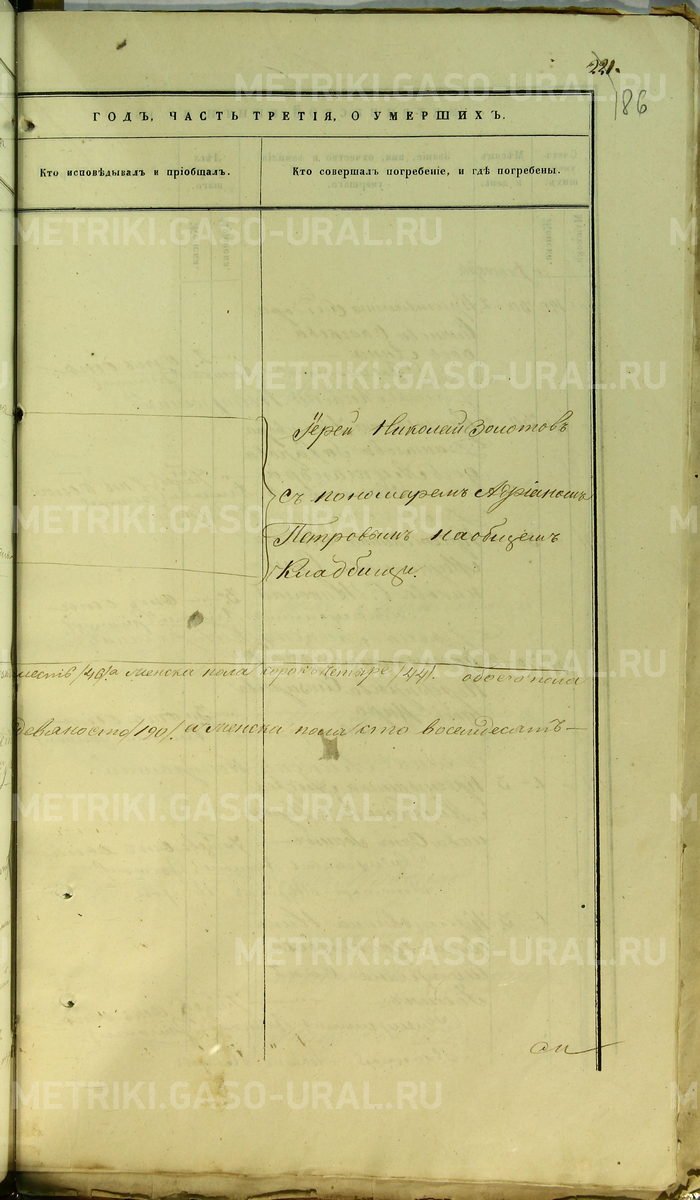 221.
186
ГОДЪ, ЧАСТЬ ТРЕТІЯ, О УМЕРШИХЪ.
Кто исповѣдывалъ и пріобщалъ.
Кто совершалъ погребеніе, и гдѣ погребены.
METRIKI.GASO-URAL.RU
Іерей Николай Золотовъ
съ пономаремъ Адріаномъ
Петровымъ на общемъ
Кладбищи.
шесть /46/. а женска пола сорокъ четыре /44/. обоего пола
девяносто /190/. а женска пола /сто восемдесятъ—